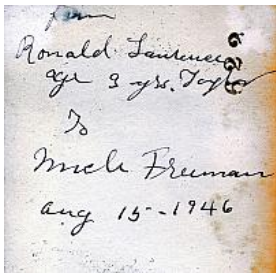 from
Ronald Laurence
age 3 yrs. Taylor
To
Uncle Freeman
Aug 15-1946